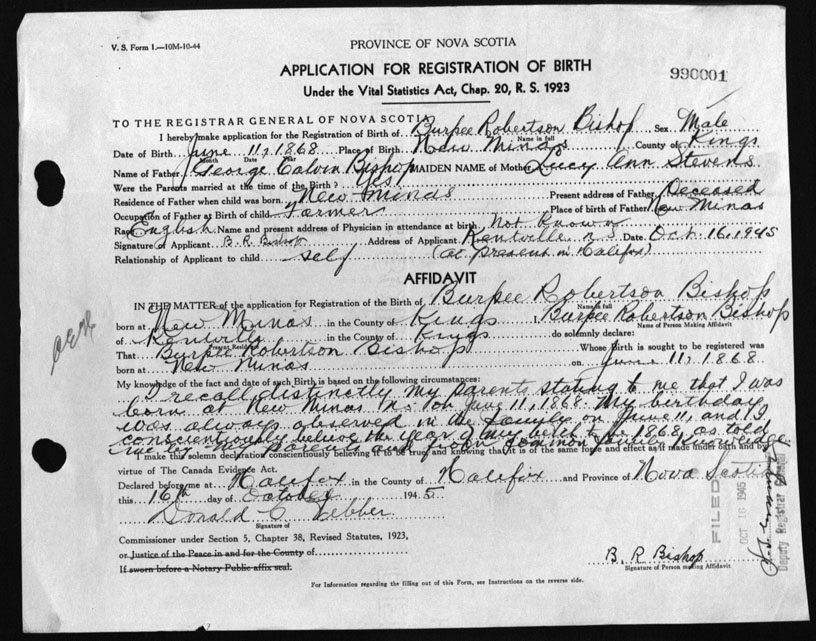 V. S. Form 1.—10M-10-44
PROVINCE OF NOVA SCOTIA
APPLICATION FOR REGISTRATION OF BIRTH
990001
Under the Vital Statistics Act, Chap. 20, R. S. 1923
TO THE REGISTRAR GENERAL OF NOVA SCOTIA
I hereby make application for the Registration of Birth of Burpee Robertson Bishop Sex Male
Name in full
Date of Birth June 11, 1868 Place of Birth New Minas County of Kings
Month Date Year
Name of Father George Calvin Bishop MAIDEN NAME of Mother Lucy Ann Stevens
Were the Parents married at the time of the Birth? Yes
Residence of Father when child was born New Minas Present address of Father Deceased
Occupation of Father at Birth of child Farmer Place of birth of Father New Minas
Race English Name and present address of Physician in attendance at birth Not Known
Signature of Applicant B. R. Bishop Address of Applicant Kentville N.S. Date Oct. 16, 1945
Relationship of Applicant to child self (at present in Halifax)
AFFIDAVIT
IN THE MATTER of the application for Registration of the Birth of Burpee Robertson Bishop
Name in full
born at New Minas in the County of Kings, Burpee Robertson Bishop
Name of Person Making Affidavit
of Kentville in the County of Kings do solemnly declare:
Present Residence
That Burpee Robertson Bishop Whose Birth is sought to be registered was
born at New Minas on June 11, 1868
My knowledge of the fact and date of such Birth is based on the following circumstances:
I recall distinctly my parents stating to me that I was
born at New Minas on June 11, 1868. My birthday
was always observed in the family on June 11, and I
conscientiously believe the year of my birth to be 1868, as told
me by my parents and from common family knowledge.
I make this solemn declaration conscientiously believing it to be true and knowing that it is of the same force and effect as if made under oath and by
virtue of The Canada Evidence Act.
Declared before me at Halifax in the County of Halifax and Province of Nova Scotia
this 16th day of October 1945
Donald C. Webber
Signature of
Commissioner under Section 5, Chapter 38, Revised Statutes, 1923,
or Justice of the Peace in and for the County of
If sworn before a Notary Public affix seal.
B. R. Bishop
Signature of Person making Affidavit
FILED
OCT 16 1945
Deputy Registrar General
For Information regarding the filling out of this Form, see Instructions on the reverse side.